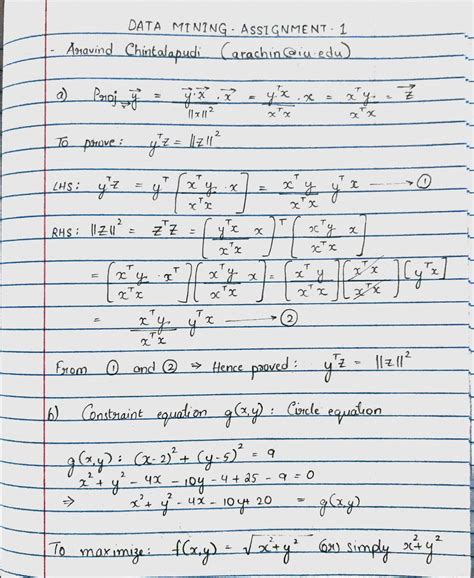 DATA MINING - ASSIGNMENT - 1
- Aravind Chintalapudi (arachin@iu.edu)
a) Proj→ y⃗ = y⃗·x⃗/||x||² · x⃗ = yᵀx/xᵀx · x = xᵀy/xᵀx = z⃗
To prove : yᵀz = ||z||²
LHS : yᵀz = yᵀ [xᵀy/xᵀx · x] = xᵀy/xᵀx yᵀx → ①
RHS : ||z||² = zᵀz = [yᵀx/xᵀx x]ᵀ [xᵀy/xᵀx x]
= [xᵀy/xᵀx · xᵀ] [xᵀy/xᵀx x] = [xᵀy/xᵀx] [xᵀx/xᵀx] [yᵀx]
= xᵀy/xᵀx yᵀx → ②
From ① and ② ⇒ Hence proved : yᵀz = ||z||²
b) Constraint equation g(x,y) : Circle equation
g(x,y) : (x-2)² + (y-5)² = 9
x² + y² - 4x - 10y - 4 + 25 - 9 = 0
⇒ x² + y² - 4x - 10y + 20 = g(x,y)
To maximize : f(x,y) = √x² + y² (or) simply x² + y²